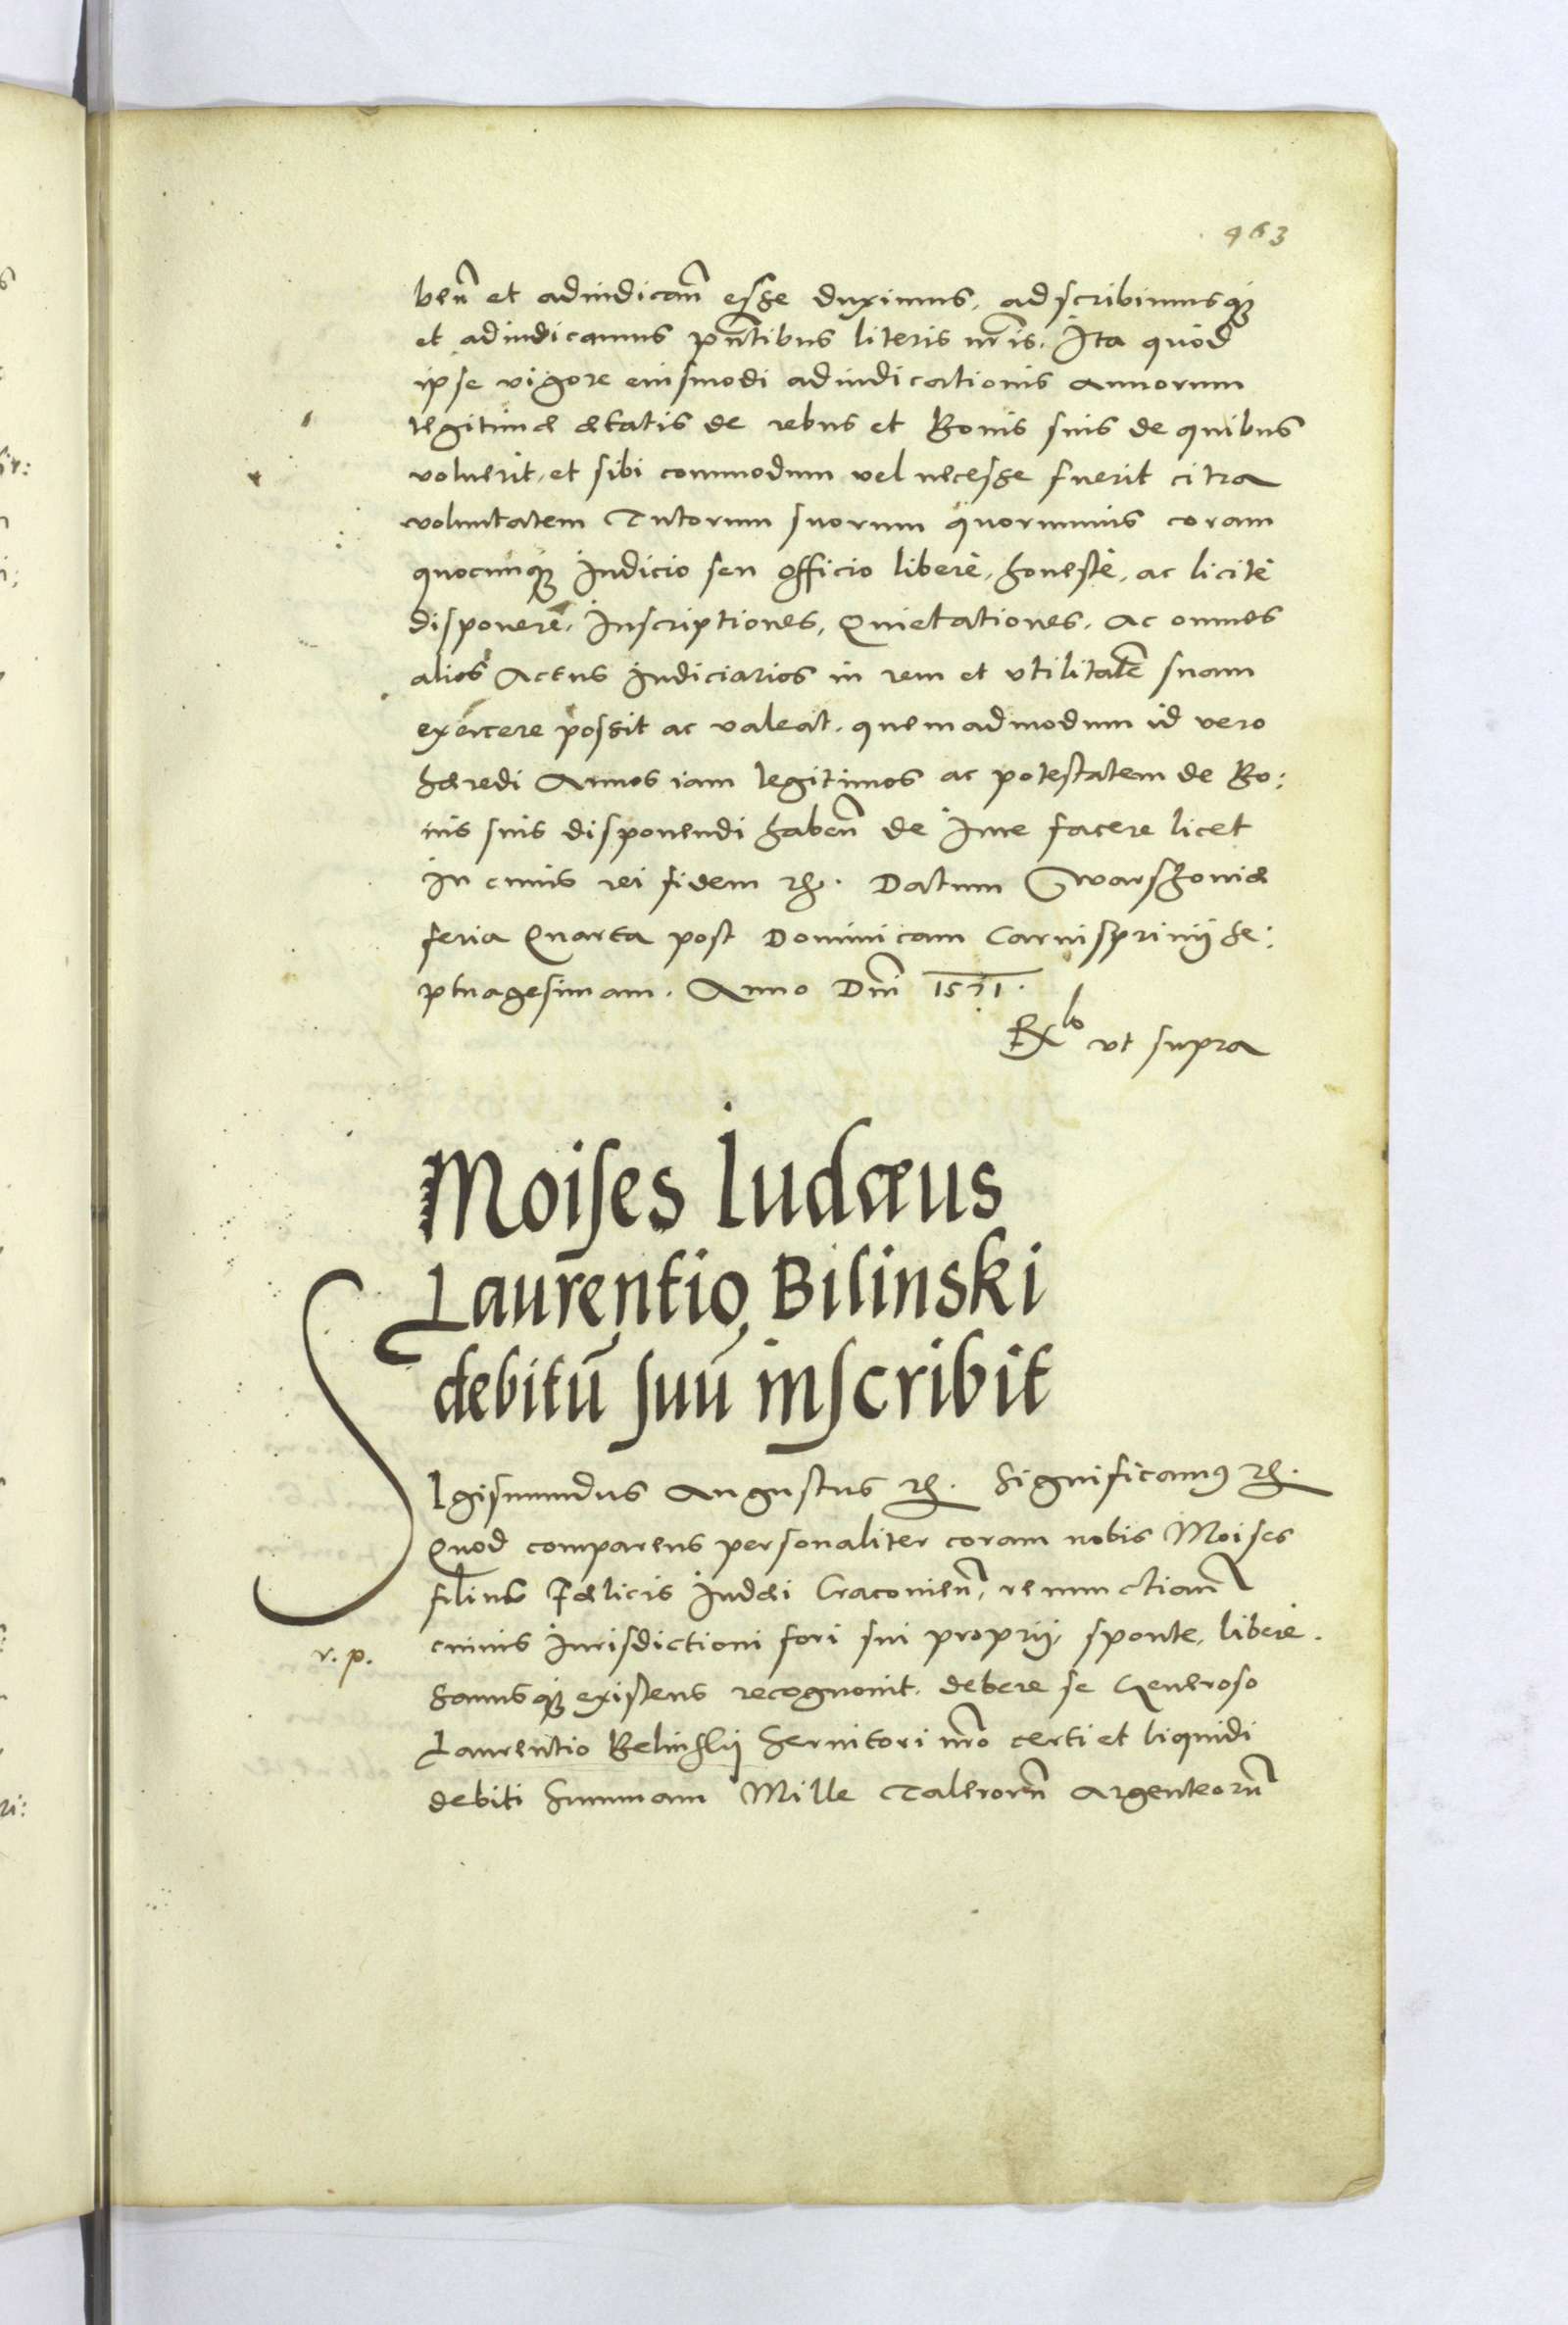 463
ben̄ et adiudican̄ esse duximus, adscribimusq3
et adiudicamus pn̄tibus literis nr̄is. Ita quòd
ipse vigore eiusmodi adiudicationis annorum
legitimæ ætatis de rebus et Bonis suis de quibus
voluerit, et sibi commodum vel necesse fuerit citra
voluntatem Tutorum suorum quorumuis coram
quocunq3 Iudicio seu officio liberè, honestè, ac licitè
disponere, Inscriptiones, Quietationes, Ac omnes
alios Actus Iudiciarios in rem et vtilitatē suam
exercere possit ac valeat, quemadmodum id vero
hæredi Annos iam legitimos ac potestatem de Bo:
nis suis disponendi haben̄ de Iure facere licet
In cuius rei fidem etc. Datum Warszouiæ
feria Quarta post Dominicam Carnispriuij Se:
ptuagesimam. Anno Dn̄i 1571.
ut supra
Moises Iudæus
Laurentio Bilinski
debitū suū inscribit
SIgismundus Augustus etc. Significamus etc.
Quod comparens personaliter coram nobis Moises
filius Fælicis Iudæi Cracouien̄, renunctian̄
r. p.
cuiuis Iurisdictioni fori sui proprij, sponte, liberè,
Sanusq3 existens recognouit, debere se Generoso
Laurentio Belinskij Seruitori nr̄o certi et liquidi
debiti Summam Mille Talerorū Argenteorū